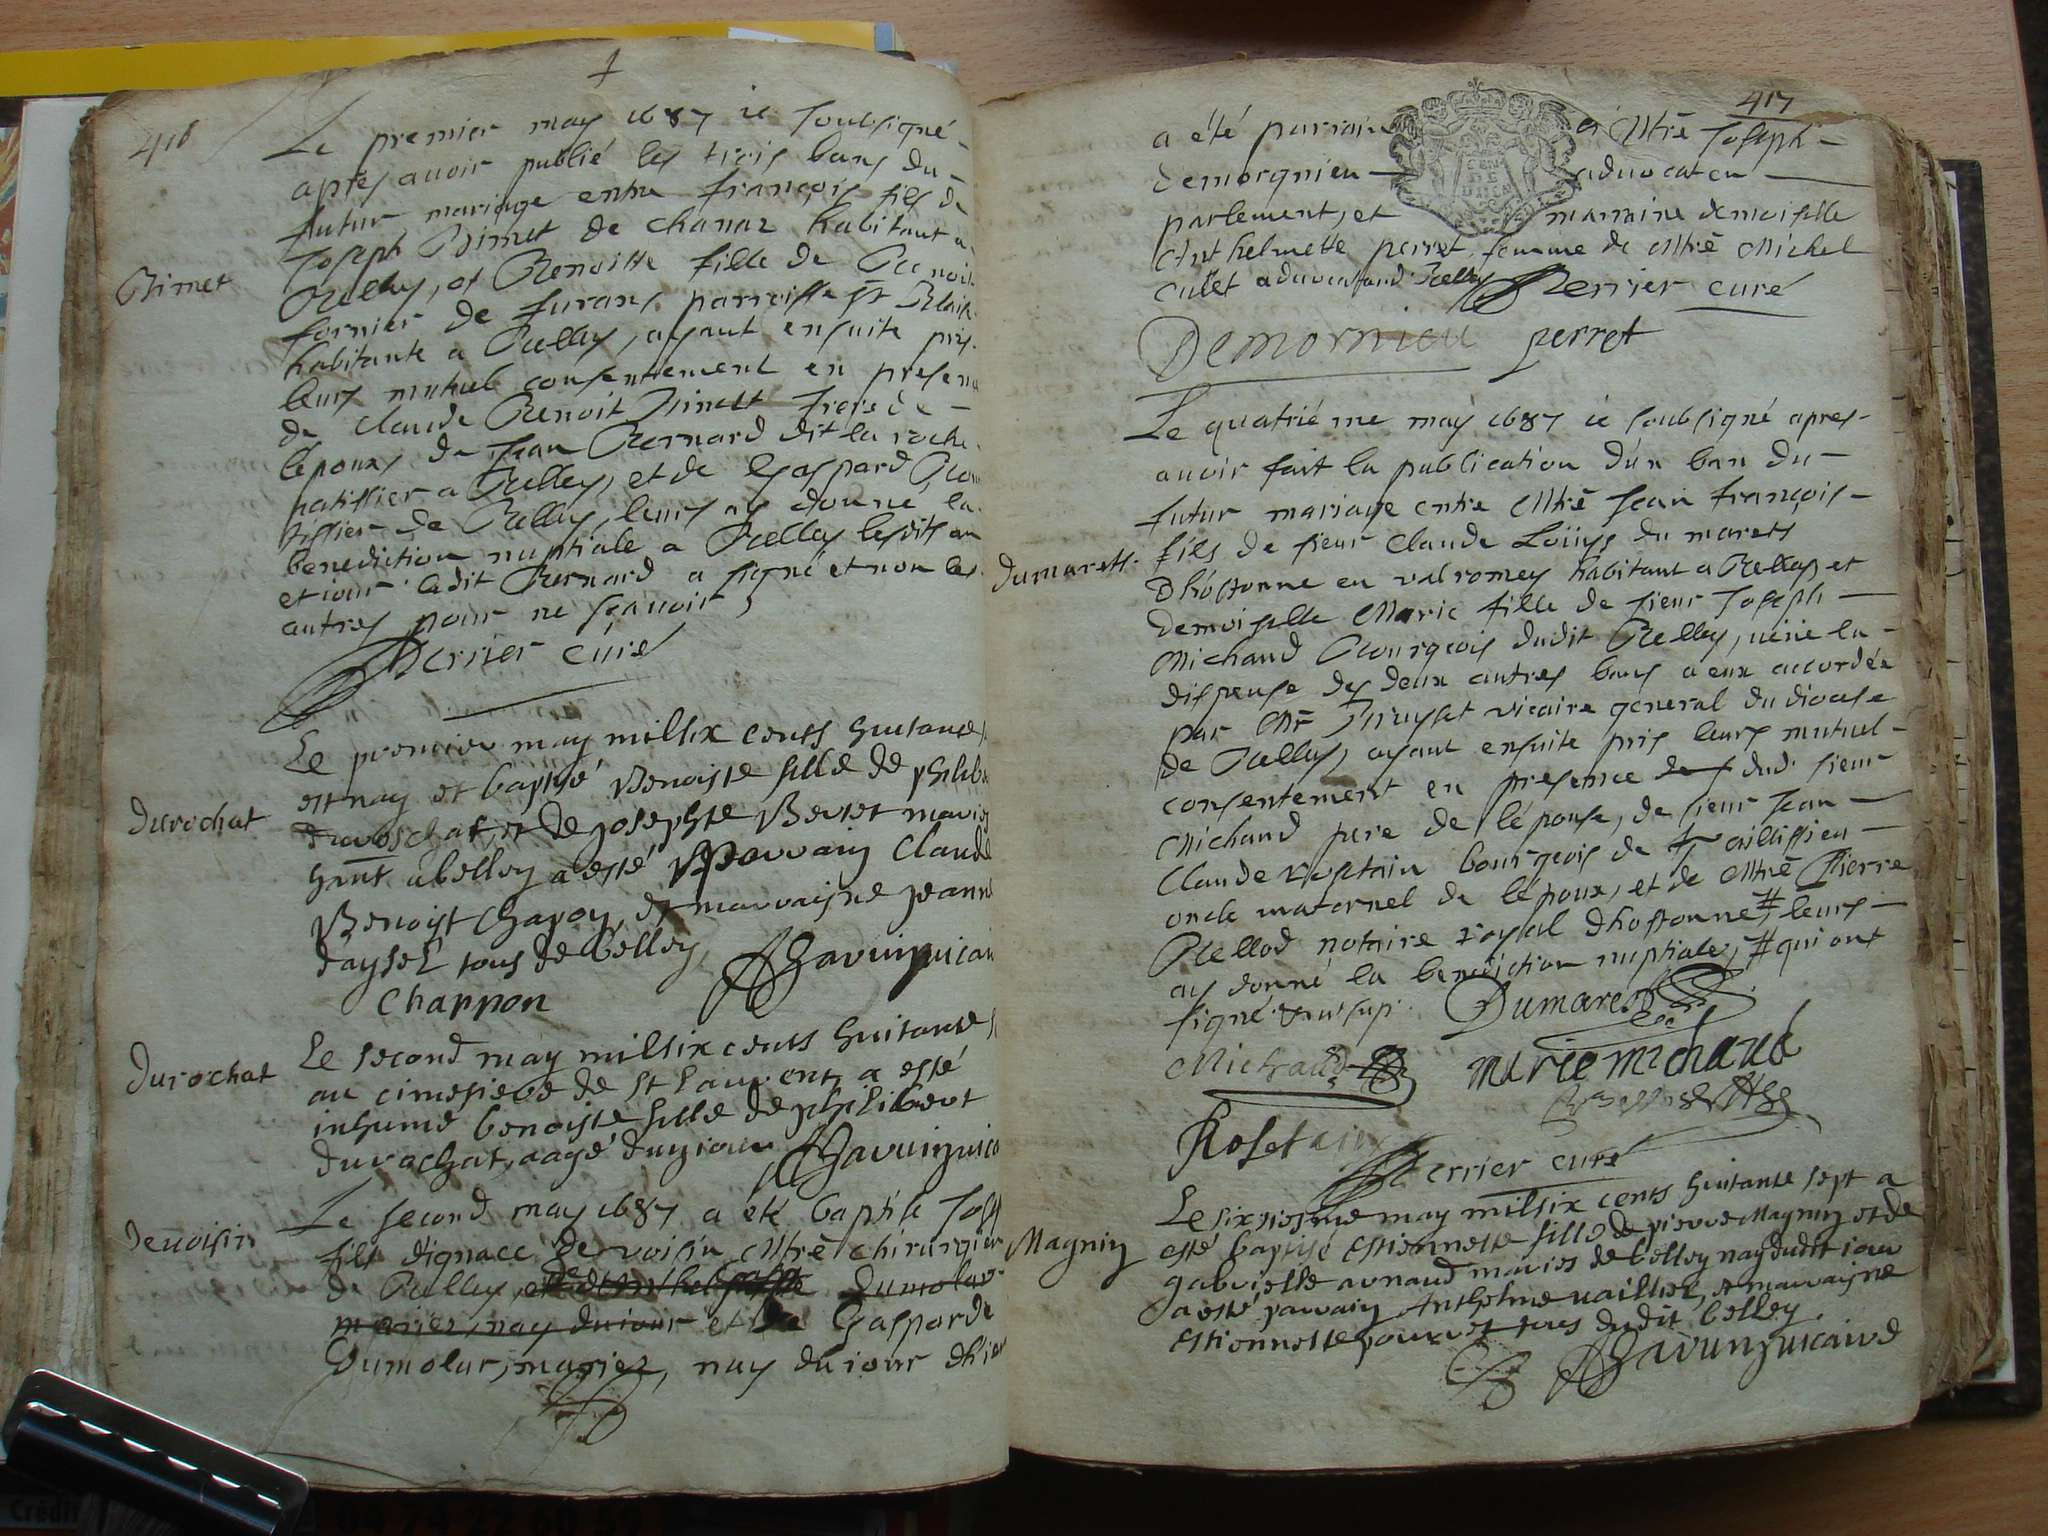 416
Le premier may 1687 ie soubsigné
apres auoir publié les trois bans du
futur mariage entre françois fils de
Joseph Binet de Chanaz habitant a
Belley, et Benoitte fille de Benoit
fornier de furans parroisse St Blaise
habitante a Belley, ayant ensuite pris
leurs mutuel consentement en presence
de Claude Benoit Binet frere de
lepoux, de Jean Bernard dit la roche
patissier a Belley, et de Gaspard
tissier de Belley, leurs ay donné la
benediction nuptiale a Belley lesdits an
et iour ledit Bernard a signé et non les
autres pour ne sçauoir
Perrier curé
Binet
Le premier may milsix cents huitante
est nay et baptisé Benoiste fille de philibe
durochat, et de josephte Bertet maries
habitant a belley a esté parrain Claude
Benoist Chapon, et marraisne jeanne
daysel tous de belley
Chappon
Durochat
Le second may milsix cents huitante
au cimetiere de St Laurent, a esté
inhumé benoiste fille de philibert
durochat, aagé dung iour
Durochat
Le second may 1687 a été baptisé Jose
fils d'ignace devoisin Mtrê chirurgien
de Belley, dumolar
mariez, nay du iour et de Gasparde
Dumolar, mariez, nay du iour d'hier
Deuoisin
417
a été parrain Mtrê Joseph
demorgnieu aduocat en
parlement, et marraine demoiselle
Anthelmette perret femme de Mtrê Michel
cullet aduocat aud. Belley Perrier curé
Demornieu perret
Le quatriéme may 1687 ie soubsigné apres
auoir fait la publication d'un ban du
futur mariage entre Mtrê Jean françois
fils de sieur Claude Loüys du marets
D'hostonne en valromey habitant a Belley et
demoiselle Marie fille de sieur Joseph
Michaud Bourgeois dudit Belley, ueüe la
dispense des deux autres bans a eux accordée
par Mr vicaire general du diocese
de Belley, ayant ensuite pris leurs mutuel
consentement en presence de dud. sieur
Michaud pere de l'épouse, de sieur Jean
Claude bourgeois de
oncle maternel de l'époux, et de Mtrê Pierre
Bellod notaire royal d'hostonne # leurs
ay donné la benediction nuptiale, # qui ont
signé
Dumarets
Dumarest
Michaud marie michaud
Rosetain
Perrier curé
Le sixiesme may milsix cents huitante sept a
esté baptisé Estiennette fille de pierre Magnin et de
gabrielle arnaud maries de belley nay dudit iour
a esté parrain Anthelme uaillet, et marraisne
Estiennette tous dudit belley
Magnin